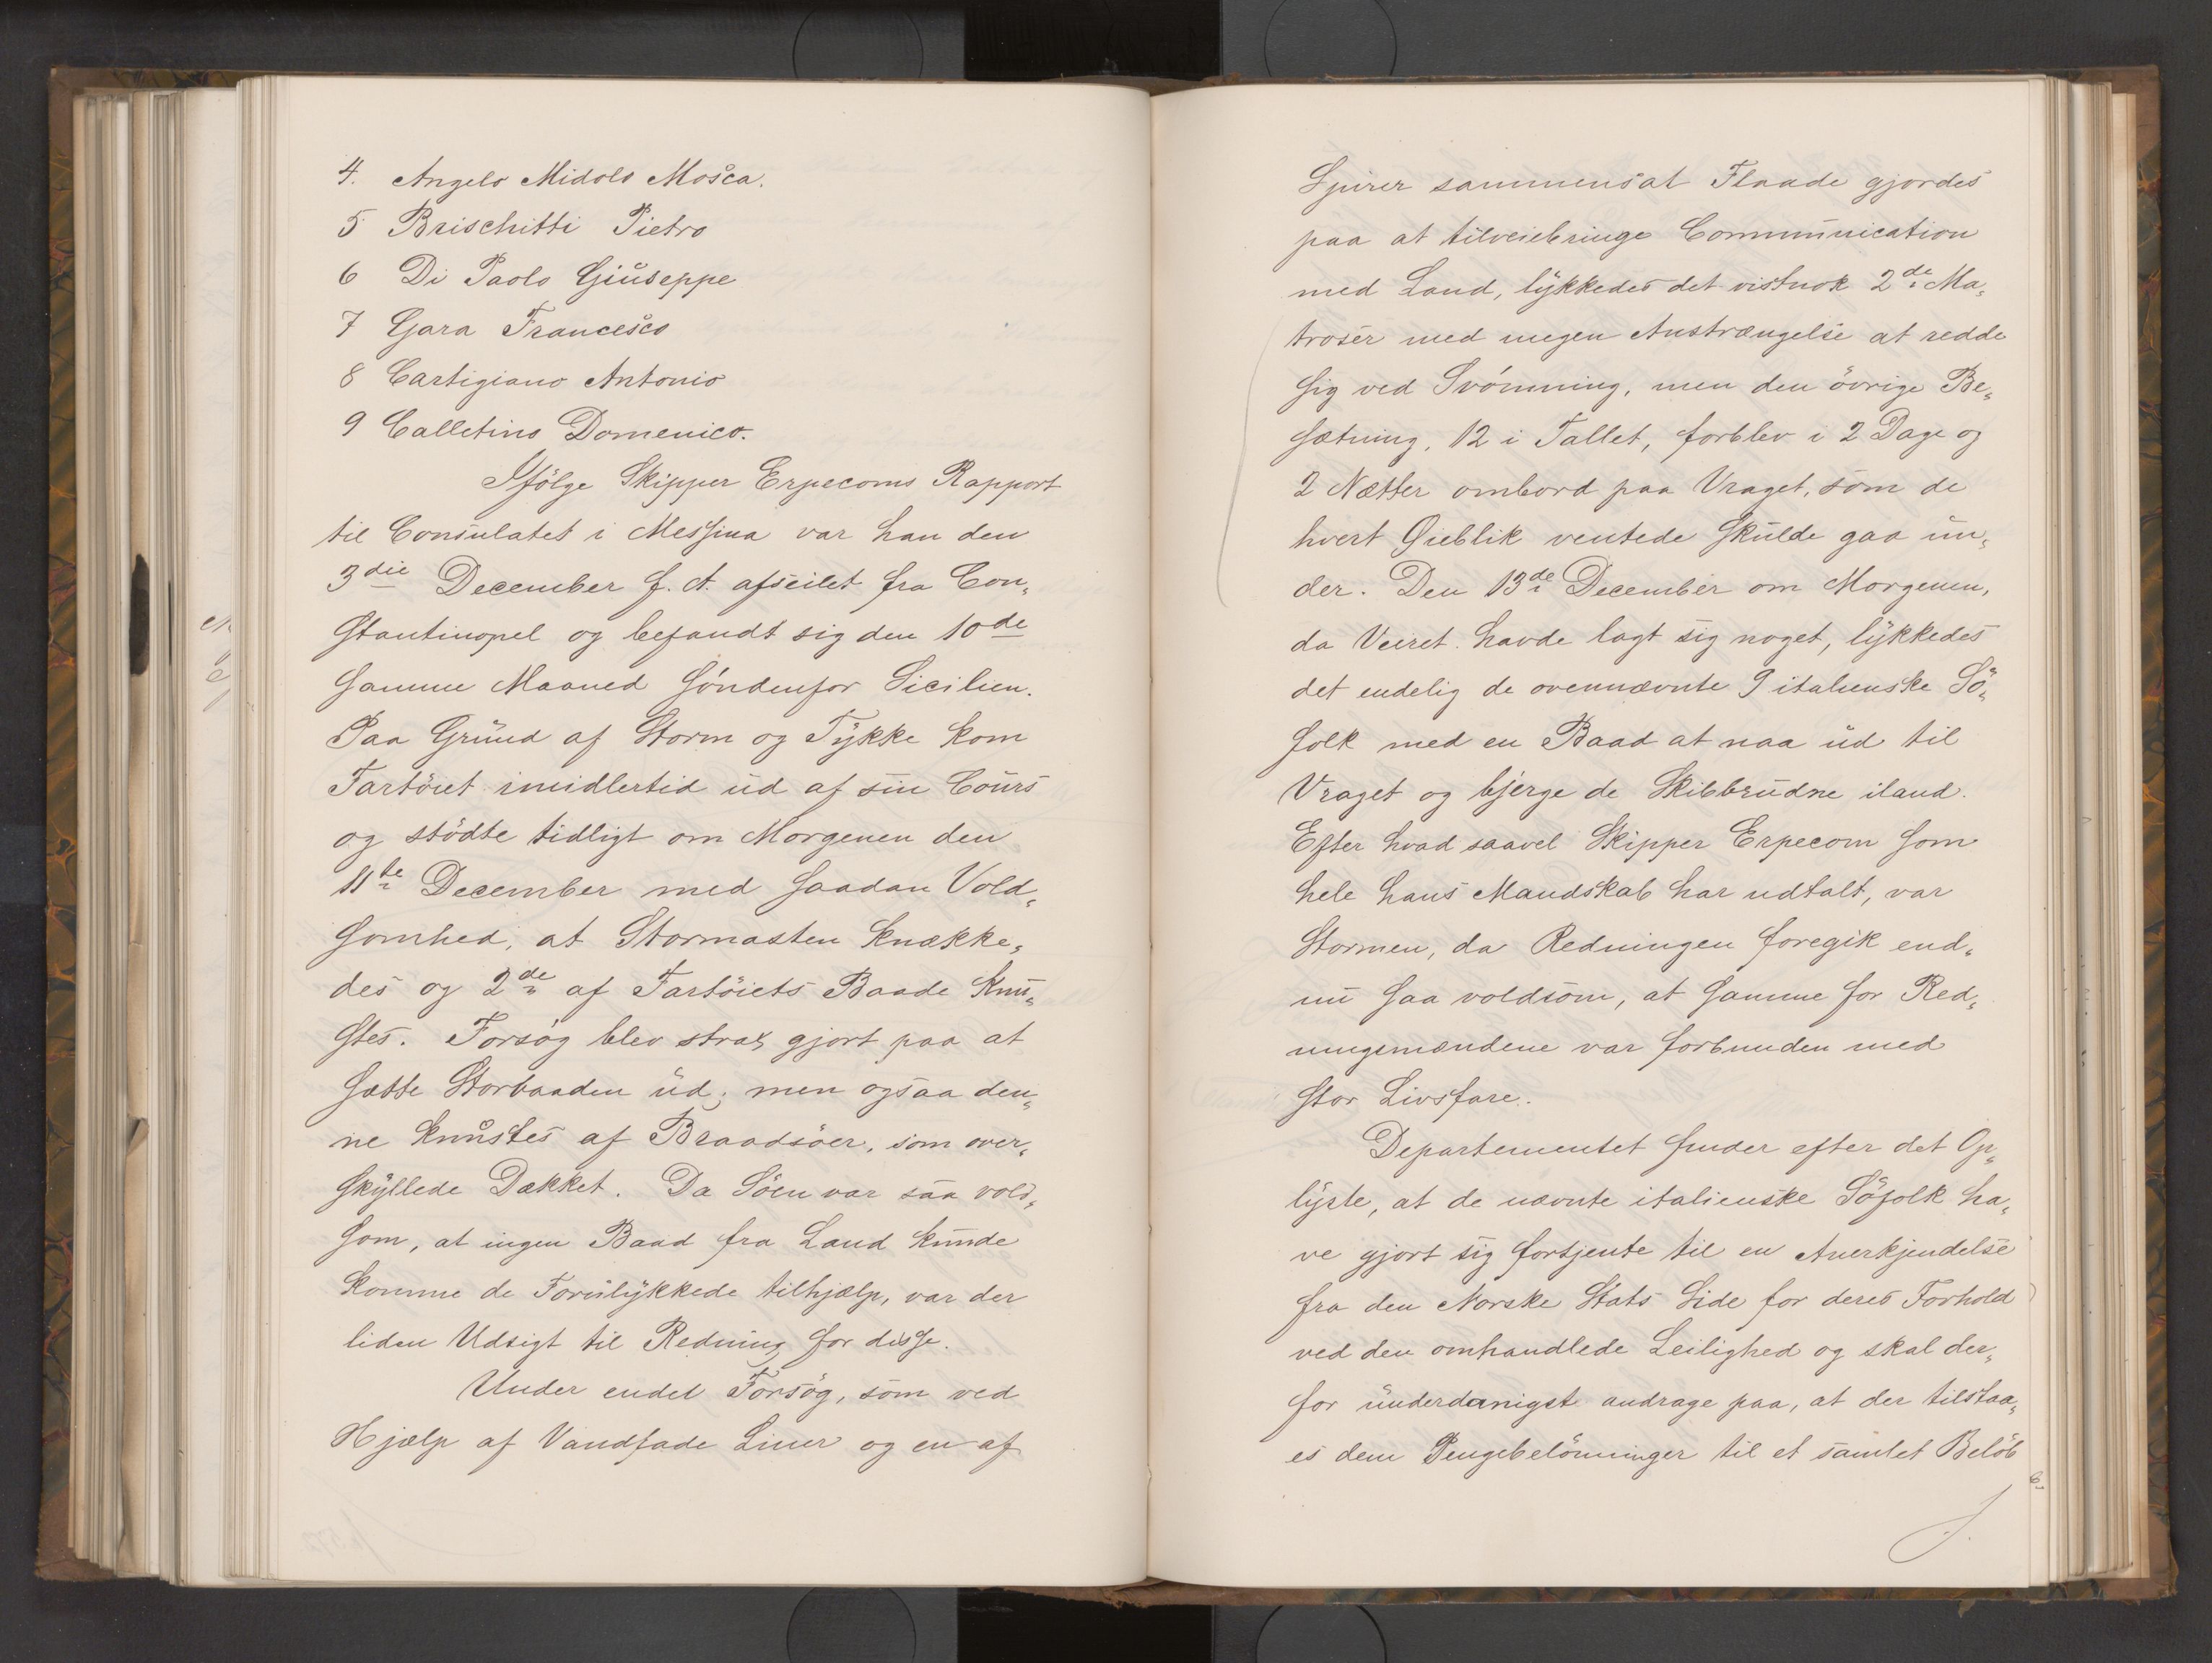 4. Angelo Midolo Mosca.
5 Brischitti Pietro
6 Di Paolo Giuseppe
7 Gara Francesco
8 Cartigiano Antonio
9 Calletino Domenico.
Ifölge Skipper Erpecoms Rapport
til Consulatet i Messina var han den
3die December f. A. afseilet fra Con„
stantinopel og befandt sig den 10de
samme Maaned söndenfor Sicilien.
Paa Grund af Storm og Tykke kom
Fartöiet imidlertid ud af sin Cours
og stödte tidligt om Morgenen den
11te December med saadan Vold„
somhed, at Stormasten knække„
des og 2de af Fartöiets Baade knu„
stes. Forsög blev strax gjort paa at
sætte Storbaaden ud; men ogsaa den„
ne knustes af Braadsöer, som over„
skyllede Dækket. Da Söen var saa vold„
som, at ingen Baad fra Land kunde
komme de Forulykkede tilhjælp, var der
liden Udsigt til Redning for disse.
Under endel Forsög, som ved
Hjælp af Vandfade Liner og en af
Spirer sammensat Flaade gjordes
paa at tilveiebringe Communication
med Land, lykkedes det vistnok 2de Ma„
troser med megen Anstrængelse at redde
sig ved Svömning, men den övrige Be„
sætning, 12 i Tallet, forblev i 2 Dage og
2 Nætter ombord paa Vraget, som de
hvert Øieblik ventede skulde gaa un„
der. Den 13de December om Morgenen,
da Veiret havde lagt sig noget, lykkedes
det endelig de ovennævnte 9 italienske Sö„
folk med en Baad at naa ud til
Vraget og bjerge de Skibbrudne iland.
Efter hvad saavel Skipper Erpecom som
hele hans Mandskab har udtalt, var
Stormen, da Redningen foregik end„
nu saa voldsom, at samme for Red„
ningsmændene var forbunden med
stor Livsfare.
Departementet finder efter det Op„
lyste, at de nævnte italienske Söfolk ha„
ve gjort sig fortjente til en Anerkjendelse
fra den Norske Stats Side for deres Forhold
ved den omhandlede Leilighed og skal der„
for underdanigst andrage paa, at der tilstaa„
es dem Pengebelönninger til et samlet Belöb